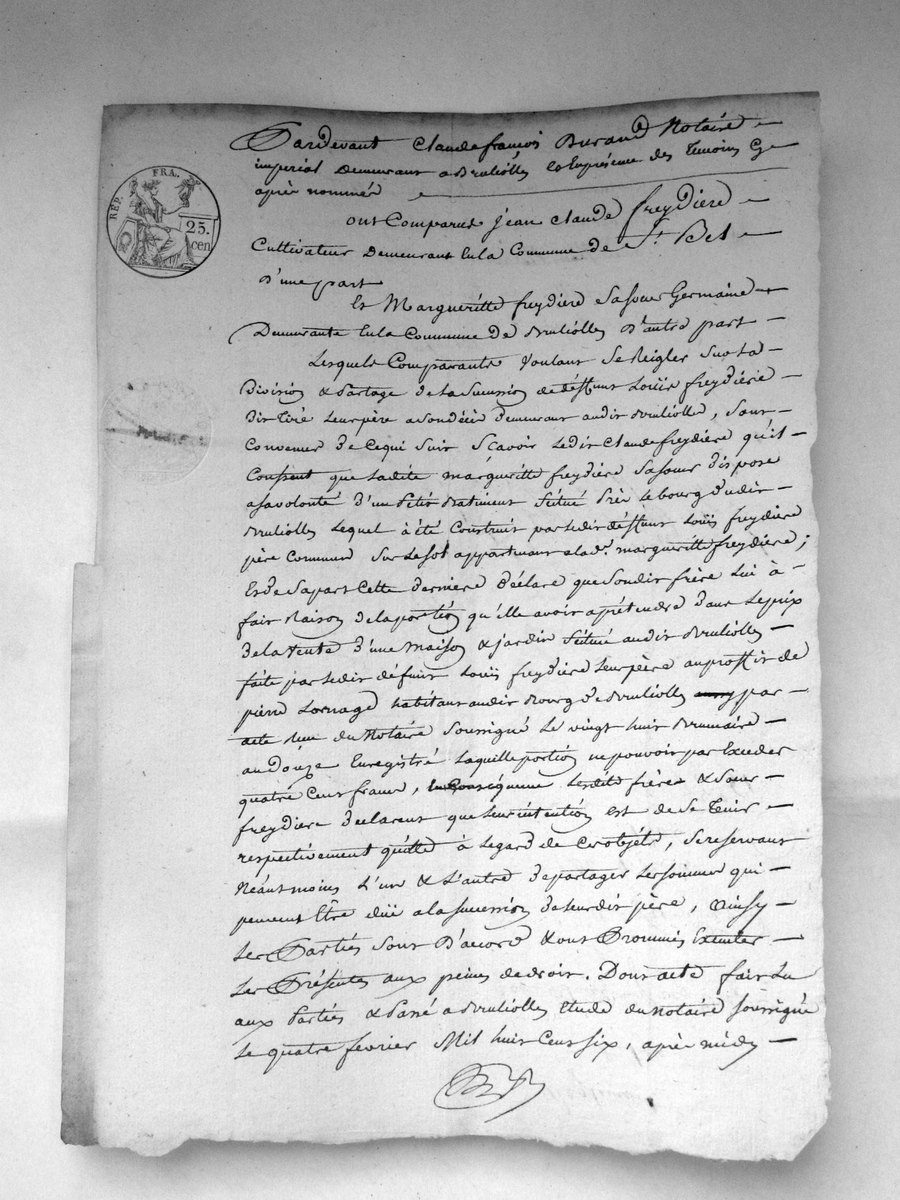 RÉP. FRA.
25.
cen
Pardevant Claude françois Durand Notaire
imperial Demeurant a Brulliolles En présence des Temoins Cy
après nommés
ont Comparus jean Claude freydiere
Cultivateur Demeurant En la Commune de St. Bel
D'une part
Et Margueritte freydiere Sa soeur Germaine
Demeurante En la Commune de Brulliolles D'autre part
Lesquels Comparants Voulant Se Reigler Sur la
Division & Partage de la Succession de déffunt Louïs freydiere
leur père a Son décès demeurant audit Brulliolle, Sont
Convenus de Ce qui Suit Scavoir ledit Claude freydiere qu'il
Consent que ladite margueritte freydiere Sa soeur dispose
a sa volonté d'un Petit Batiment Scitué Près le bourg dudit
Brulliolles lequel à été Construit par ledit déffunt Louïs freydiere
père Commun Sur le sol appartenant a lade. margueritte freydiere;
Et de Sa part Cette derniere déclare que Son dit frère lui à
fait Raison de la portion qu'elle avoit a prétendre dans le prix
de la Vente d'une Maison & jardin Scitué audit Brulliolles
faite par ledit défunt Louïs freydiere leur père au proffit de
pierre habitant audit Bourg de Brulliolles par
acte Reçu du Notaire Soussigné le vingt huit Brumaire
an douze Enregistré laquelle portion ne pouvoit pas Exceder
quatre Cent francs, En Conséquence lesdits frère & Soeur
freydiere déclarent que leur intention est de Se Tenir
respectivement quitte à légard de Ces objets, Se reservant
Néant moins L'un & L'autre de partager les sommes qui
peuvent Être düe a la succession de leur dit père, Ainsy
les Parties Sont D'accord & ont Promis Executer
les Présentes aux peines de droit. Dont acte fait Lu
aux Parties & Passé a Brulliolles Etude du Notaire Soussigné
le quatre fevrier Mil huit Cent Six, après midy